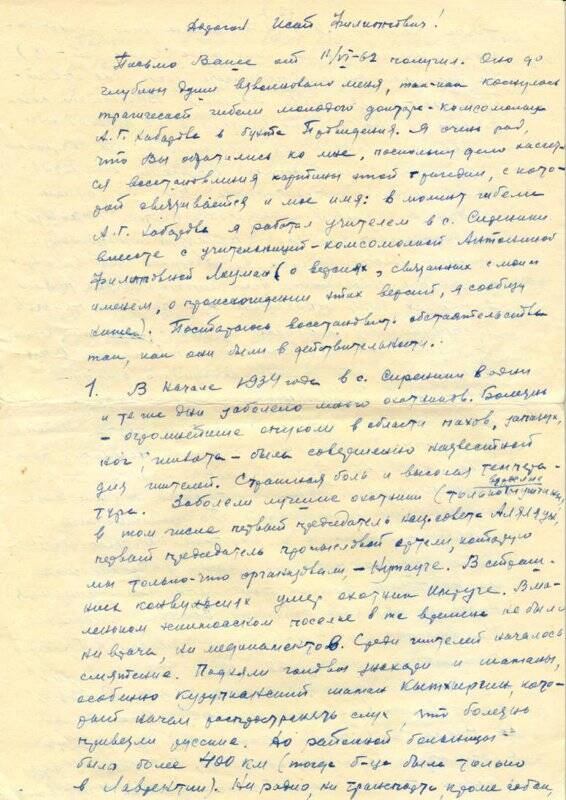 Дорогой Исай Филиппович!
Письмо Ваше от 11/VI-62 получил. Оно до
глубины души взволновало меня, так-как коснулось
трагической гибели молодого доктора-комсомольца
А.Г. Хабарова в бухте Провидения. Я очень рад,
что Вы обратились ко мне, поскольку дело касает-
ся восстановления картины этой трагедии, с кото-
рой связывается и мое имя: в момент гибели
А.Г. Хабарова я работал учителем в с. Сиреники
вместе с учительницей-комсомолкой Антониной
Филипповной (о версиях, связанных с моим
именем, о происхождении этих версий, я сообщу
ниже). Постараюсь восстановить обстоятельства
так, как они были в действительности.
1. В начале 1934 года в с. Сиреники в одни
и те же дни заболело много охотников. Болезнь
- огромнейшие опухоли в области пахов,
ног, живота - была совершенно неизвестной
для жителей. Страшная боль и высокая темпера-
тура. Заболели лучшие охотники (только мужчины)
в том числе первый председатель нацсовета
первый председатель промысловой артели, которую
мы только-что организовали, - Нутауге. В страш-
ных конвульсиях умер охотник В ма-
леньком эскимосском поселке в те времена не было
ни врача, ни медикаментов. Среди жителей началось
смятение. Подняли головы знахари и шаманы,
особенно шаман кото-
рый начал распространять слух, что болезнь
привезли русские. До районной больницы
было более 400 км (тогда б-ца была только
в Лаврентии). Ни радио, ни транспорта, кроме собак,